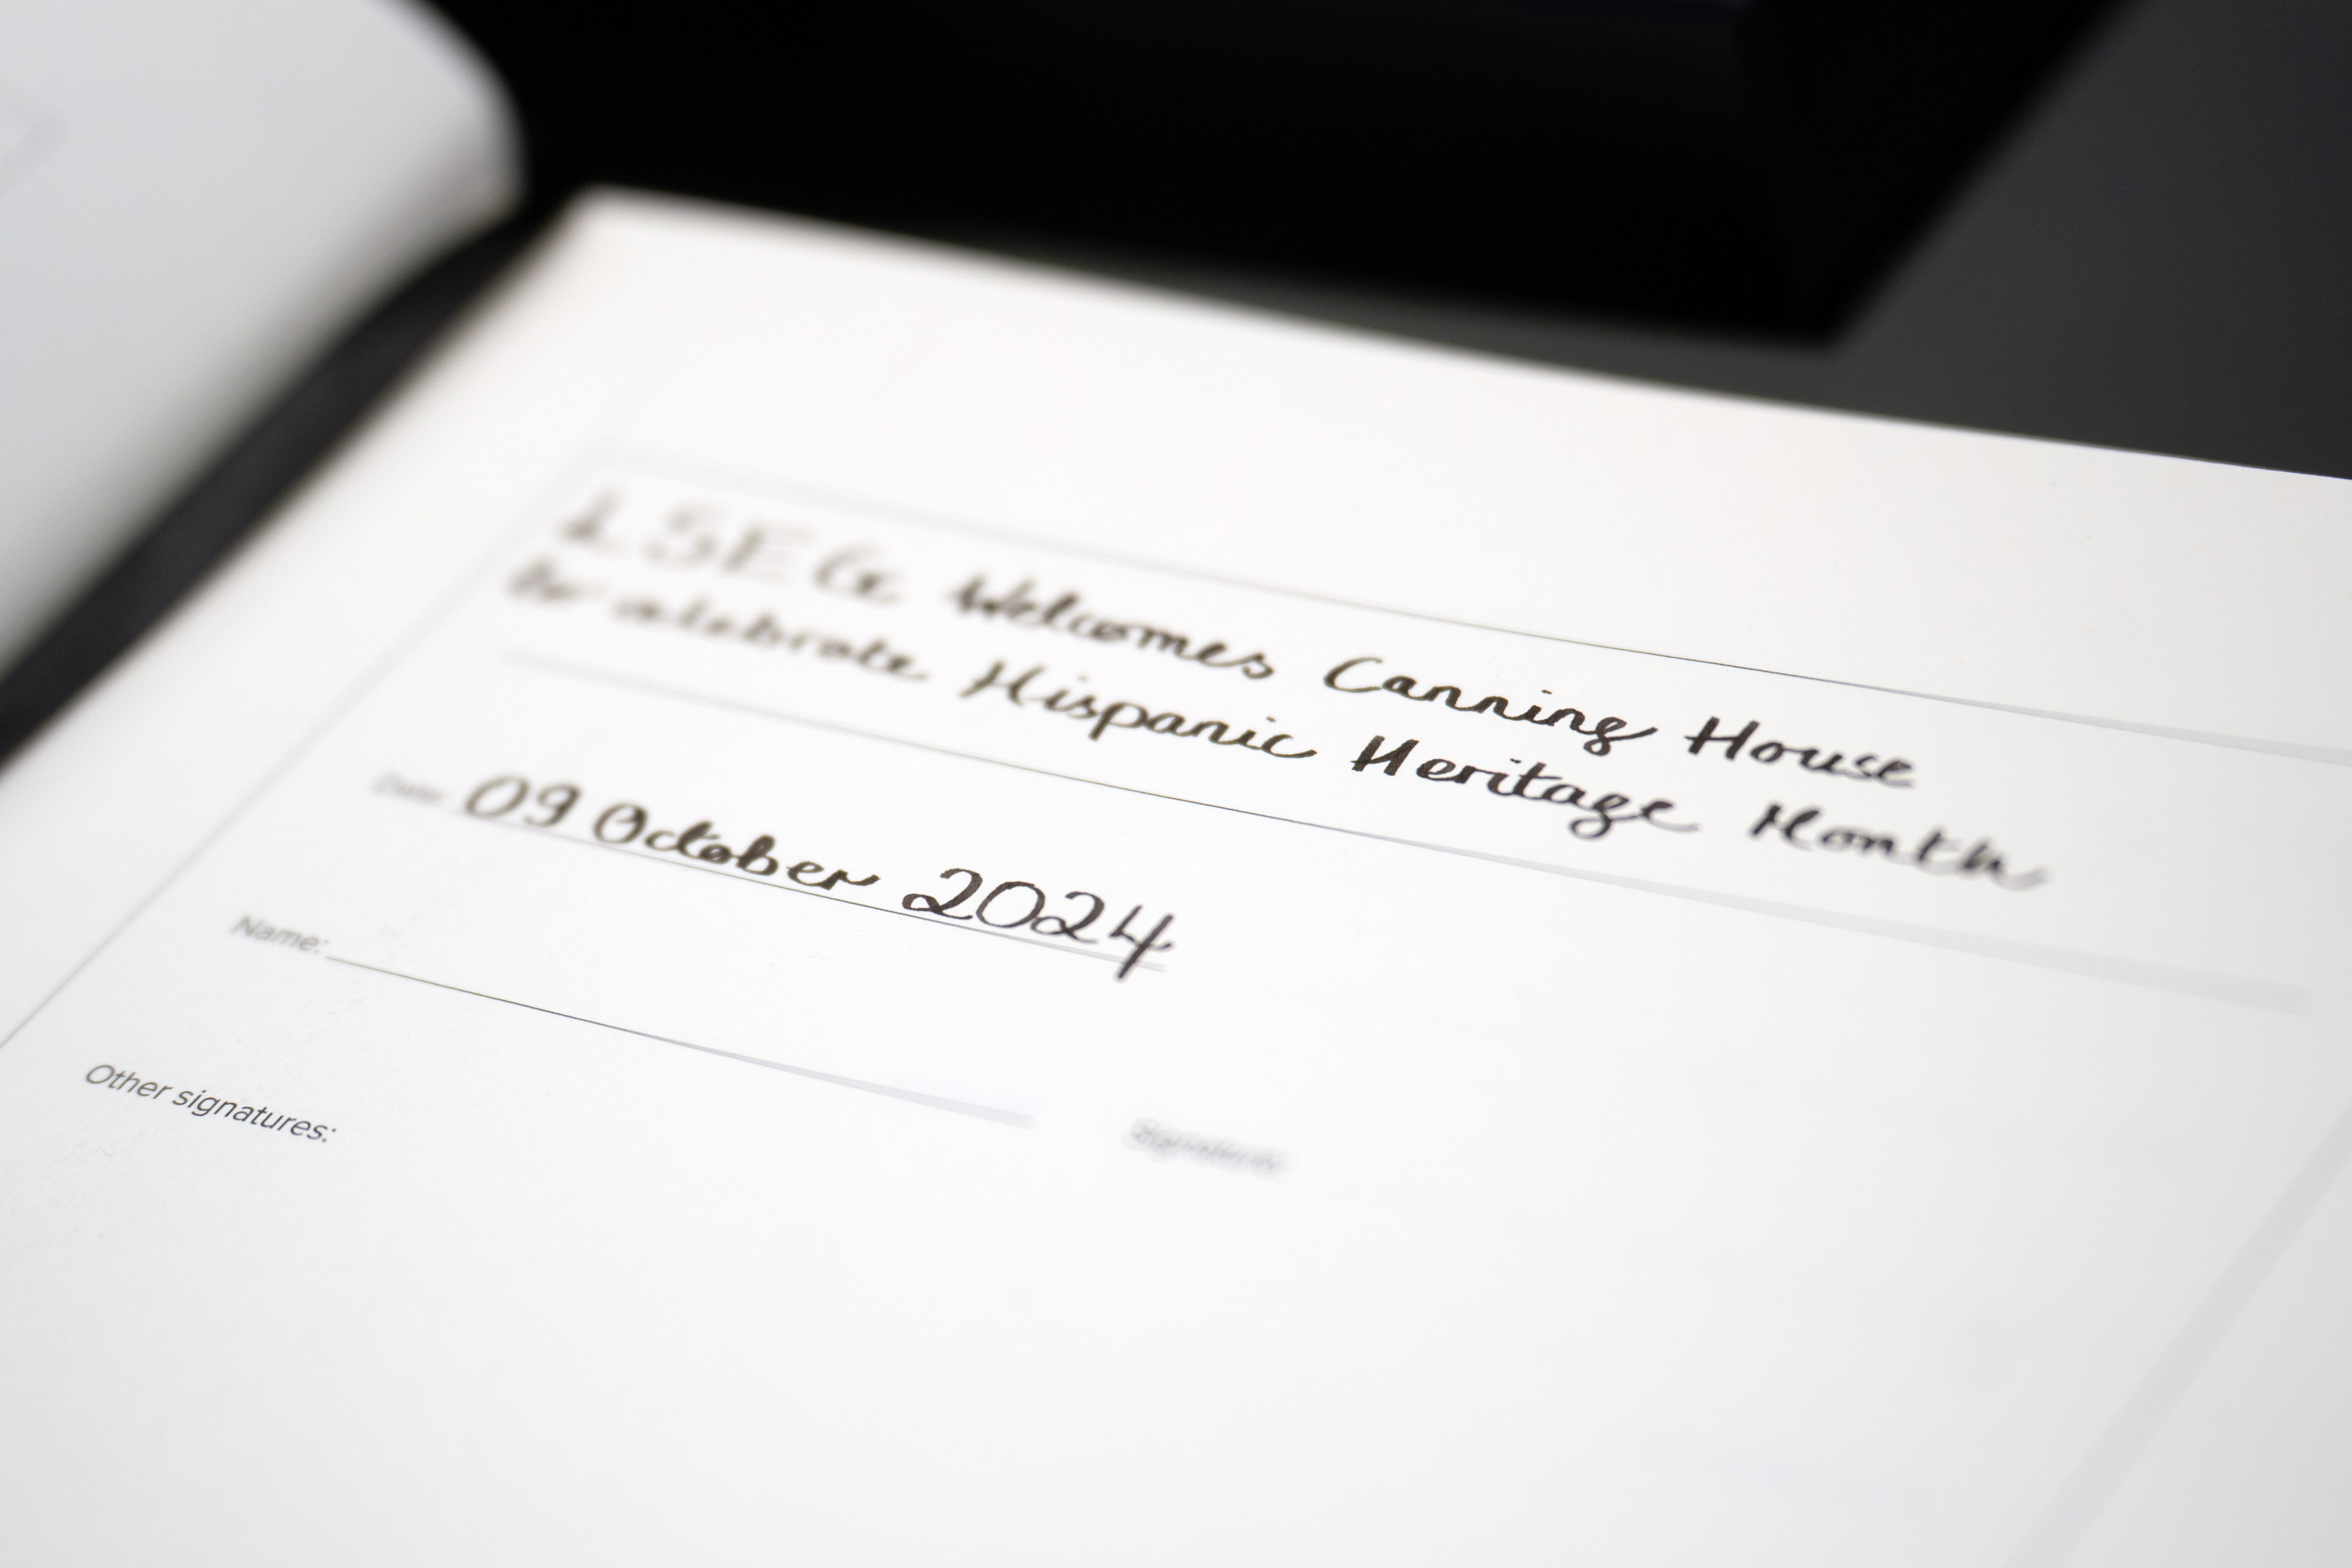 LSEG Welcomes Canning House
to celebrate Hispanic Heritage Month
Date: 09 October 2024
Name:
Signature:
Other signatures: